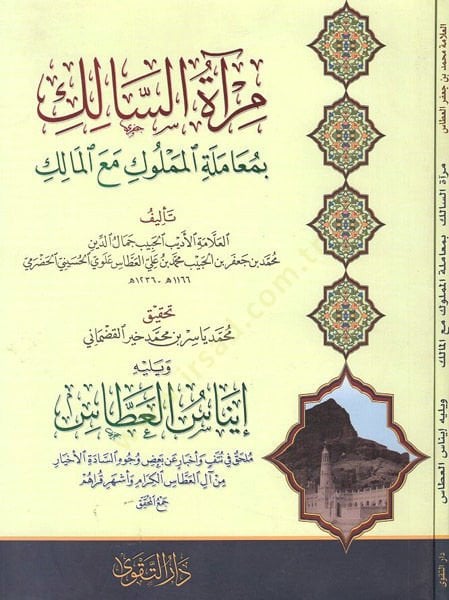 مِرآةُ السَّالِكِ
بِمُعَامَلَةِ المَمْلُوكِ مَعَ المَالِكِ
تَأليفُ
العَلَّامَةِ الأَدِيبِ الحَبِيبِ جَمَالِ الدِّينِ
مُحَمَّد بْن جَعفَر بْنِ الحَبِيبِ مُحَمَّد بْنِ عَلِي العَطَّاس عَلَوِي الحُسَينِيِّ الحَضرَمِيِّ
١١٦٦هـ - ١٢٣٦هـ
تحقيق
مُحَمَّد يَاسِر بْن مُحَمَّد خَير القَضمَاني
وَيَلِيهِ
إِينَاسُ العَطَّاسِ
مُلحَقٌ في نُتَفٍ وَأَخبَارٍ عَن بَعضِ وُجُوهِ السَّادَةِ الأَخيَارِ
مِن آلِ العَطَّاسِ الكِرَامِ وَأَشهَرِ قُرَاهُم
جَمعُ المُحَقِّق
دَارُ التَّقْوَى
العلامة محمد بن جعفر العطاس
مرآة السالك بمعاملة المملوك مع المالك ويليه إيناس العطاس
دار التقوى